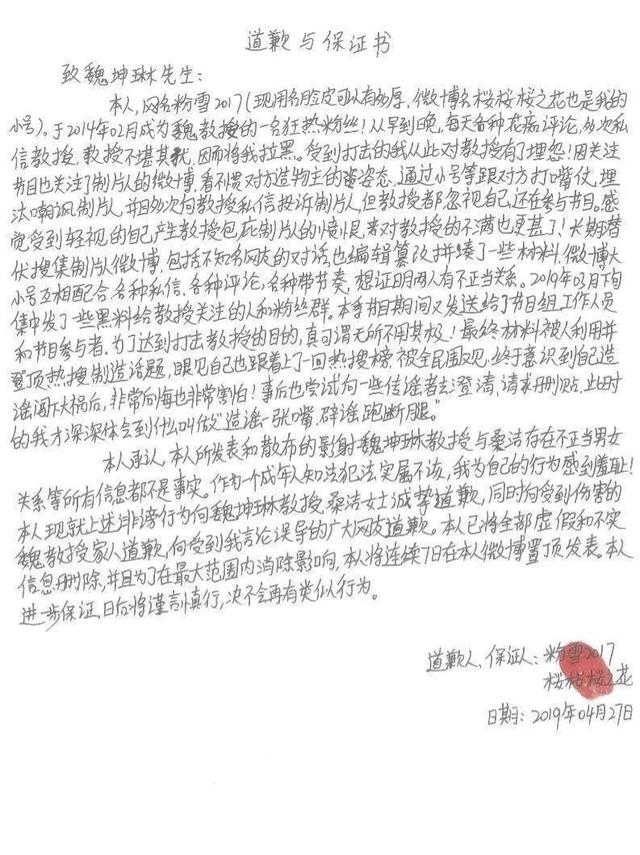 道歉与保证书
致魏坤琳先生：
本人，网名粉雪2017（现用名脸皮可以有多厚，微博名桜桜桜之花也是我的
小号）。于2014年02月成为魏教授的一名狂热粉丝！从早到晚，每天各种花痴评论，多次私
信教授，教授不堪其扰，因而将我拉黑。受到打击的我从此对教授有了埋怨！因关注
节目也关注了制片人的微博，看不惯对方造物主的姿态，通过小号等跟对方打嘴仗，埋
汰嘲讽制片人，并且多次向教授私信投诉制片人，但教授都忽视自己，还在参与节目。感
觉受到轻视的自己产生教授包庇制片人的愤恨，来对教授的不满也更甚了！长期潜
伏搜集制片人微博，包括不知名网友的对话，也编辑篡改拼凑了一些材料，微博大
小号互相配合，各种私信，各种评论，各种带节奏，想证明两人有不正当关系。2019年03月下旬
集中发了一些黑料给教授关注的人和粉丝群。本季节目期间又发送给了节目组工作人员
和节目参与者，为了达到打击教授的目的，真可谓无所不用其极！最终材料被人利用并
登顶热搜制造话题，眼见自己也跟着上了一回热搜榜，被全民围观，终于意识到自己造
谣闯大祸后，非常后悔也非常害怕！事后也尝试向一些传谣者去澄清，请求删贴，此时
的我才深深体会到什么叫做“造谣一张嘴，辟谣跑断腿。”
本人承认，本人所发表和散布的影射魏坤琳教授与桑洁存在不正当男女
关系等所有信息都不是事实。作为一个成年人知法犯法实属不该，我为自己的行为感到羞耻！
本人现就上述诽谤行为向魏坤琳教授，桑洁女士诚挚道歉，同时向受到伤害的
魏教授家人道歉，向受到我言论误导的广大网友道歉。本人已将全部虚假和不实
信息删除，并且为了在最大范围内消除影响，本人将连续7日在本人微博置顶发表。本人
进步保证，日后将谨言慎行，次不会再有类似行为。
道歉人，保证人：粉雪2017
桜桜桜之花
日期：2019年04月27日